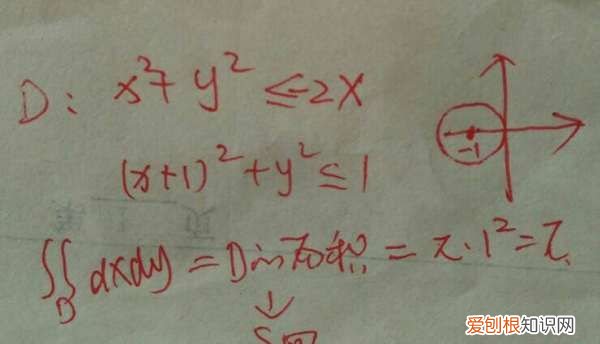 D: x²+y²≤-2x
(x+1)²+y²≤1
-1
∬_D dxdy = D的面积 = π·1² = π.
↓
S圆
爱刨根知识网